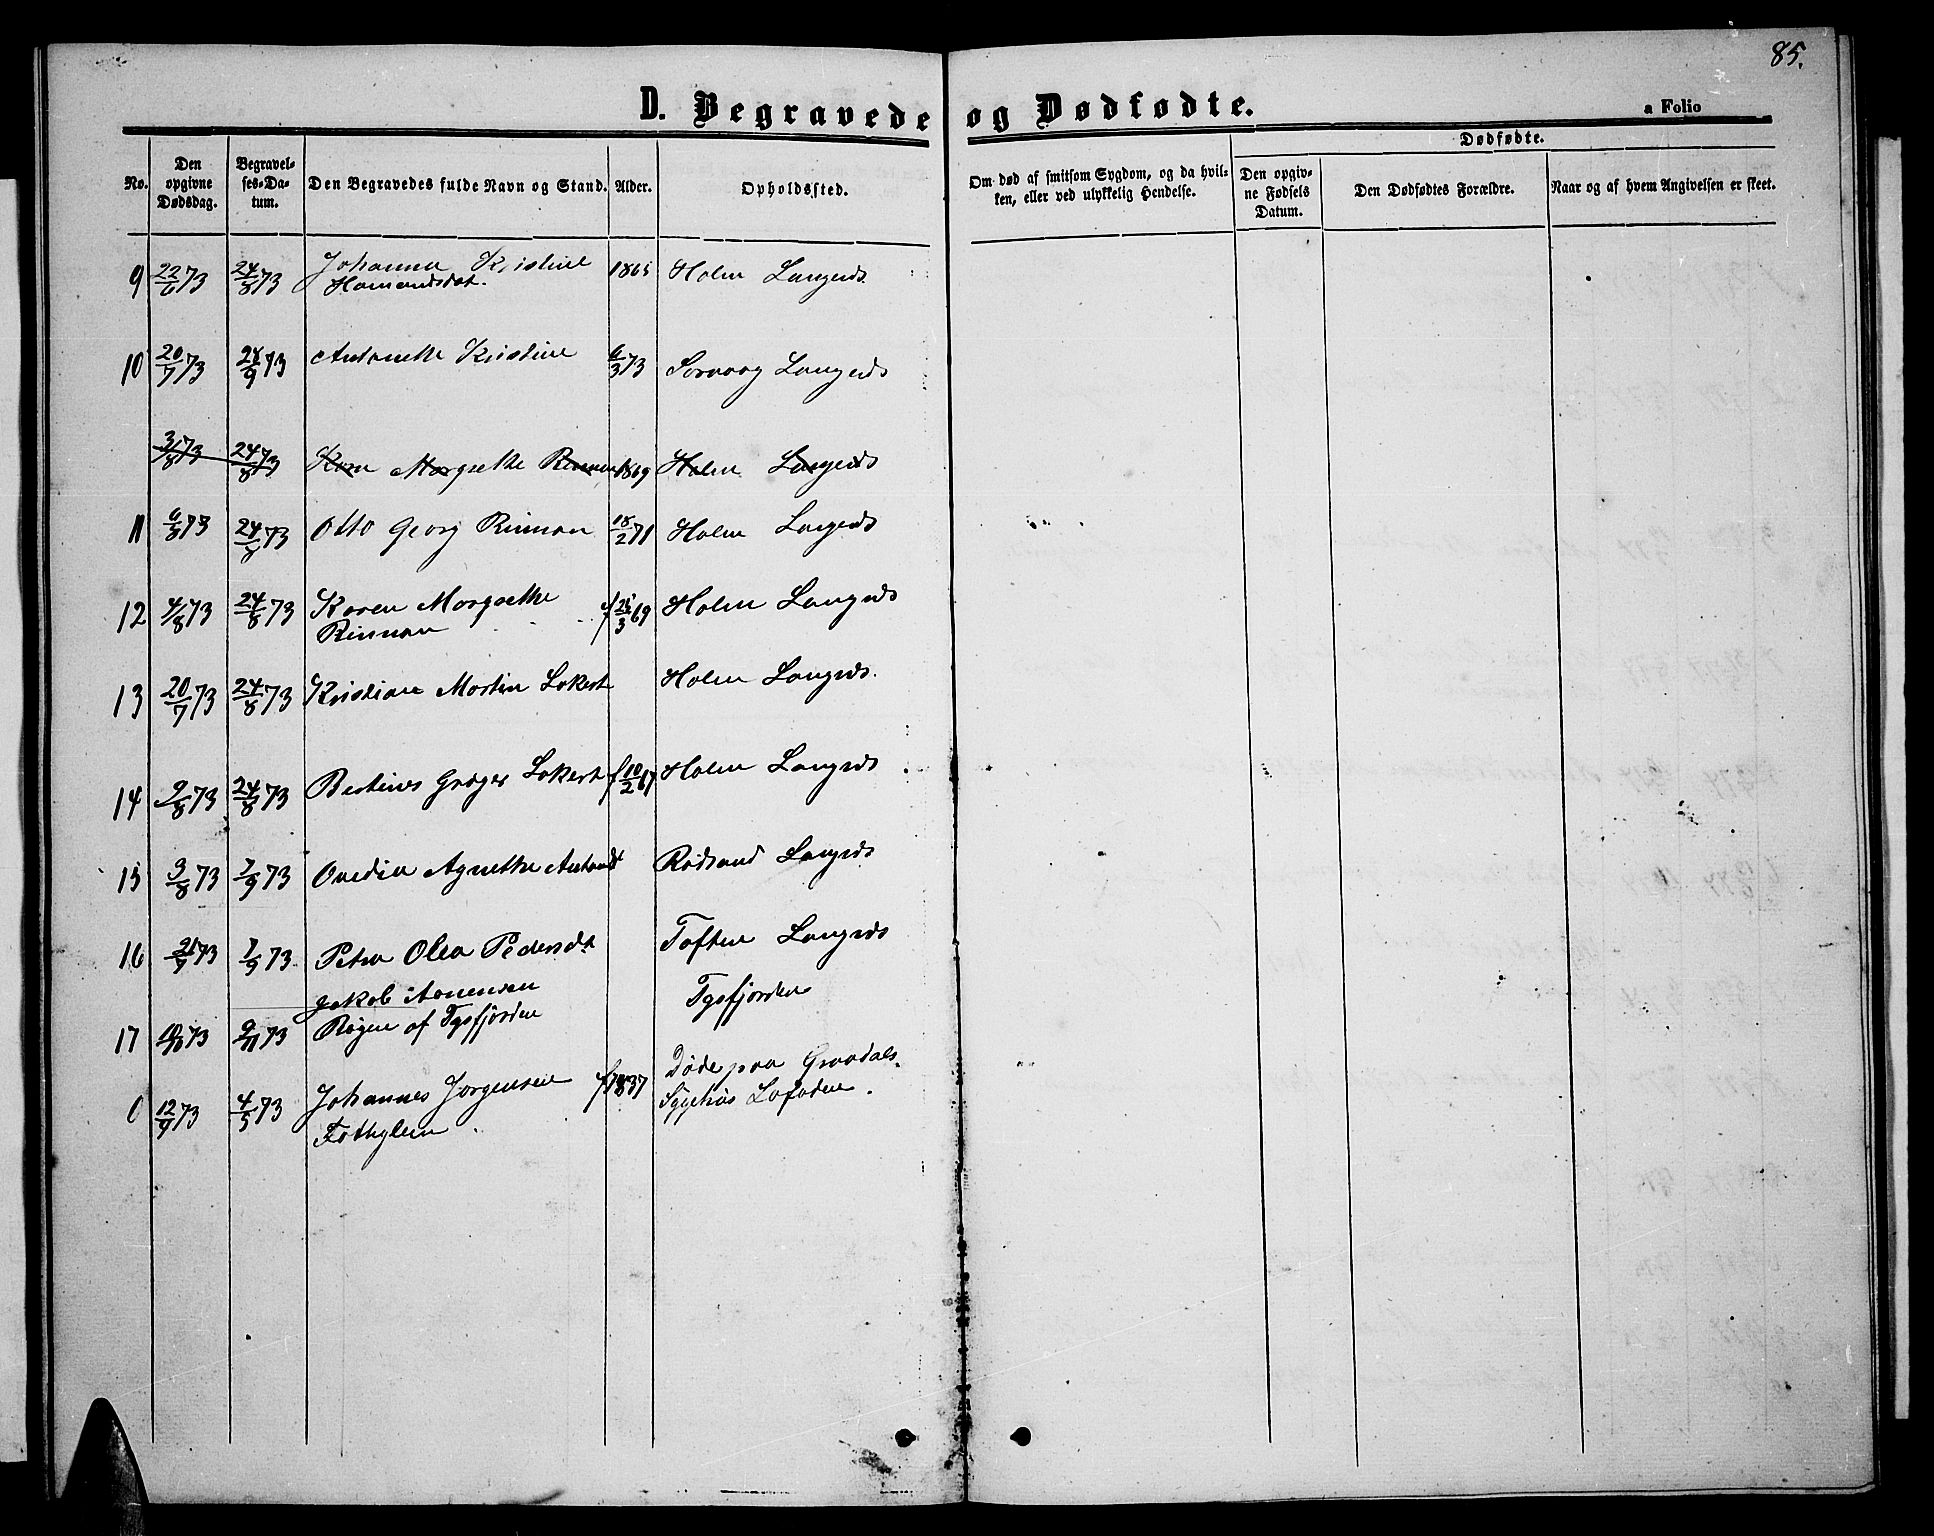 85.
D. Begravede og Dødfødte.
a Folio
No.
Den opgivne Dødsdag.
Begravelses-Datum.
Den Begravedes fulde Navn og Stand.
Alder.
Opholdssted.
Om død af smitsom Sygdom, og da hvilken, eller ved ulykkelig Hendelse.
Dødfødte.
Den opgivne Fødsels Datum.
Den Dødfødtes Forældre.
Naar og af hvem Angivelsen er skeet.
9 22/6 73 24/8 73 Johanna Kristine 1865 Holm Langnds
Hamandsdat.
10 20/7 73 24/9 73 Antonette Kristine 6/3 73 Sorvaag Langnds
3/8 73 24/8 73 Karn Margrethe Rinman 1869 Holm Langnds
11 6/8 73 24/8 73 Otto Georg Rinman 18/2 71 Holm Langnds
12 4/8 73 24/8 73 Karen Margrethe f 25/3 69 Holm Langnds
Rinman
13 20/7 73 24/8 73 Kristian Martin Lokert Holm Langnds.
14 9/8 73 24/8 73 Bertines Greger Lokert f 10/2 67 Holm Langnds
15 3/8 73 7/9 73 Ovedia Agnethe Antonsd Rødsand Langnds
16 21/7 73 7/9 73 Petra Olea Pedersdt Toften Langnds
Jakob Arnensen Tysfjorden
17 10/10 73 9/11 73 Røgen af Tysfjorden
0 12/9 73 4/5 73 Johannes Jørgensen f 1837 Døde paa Gravdals
Fothylen Sygehus Lofoden.